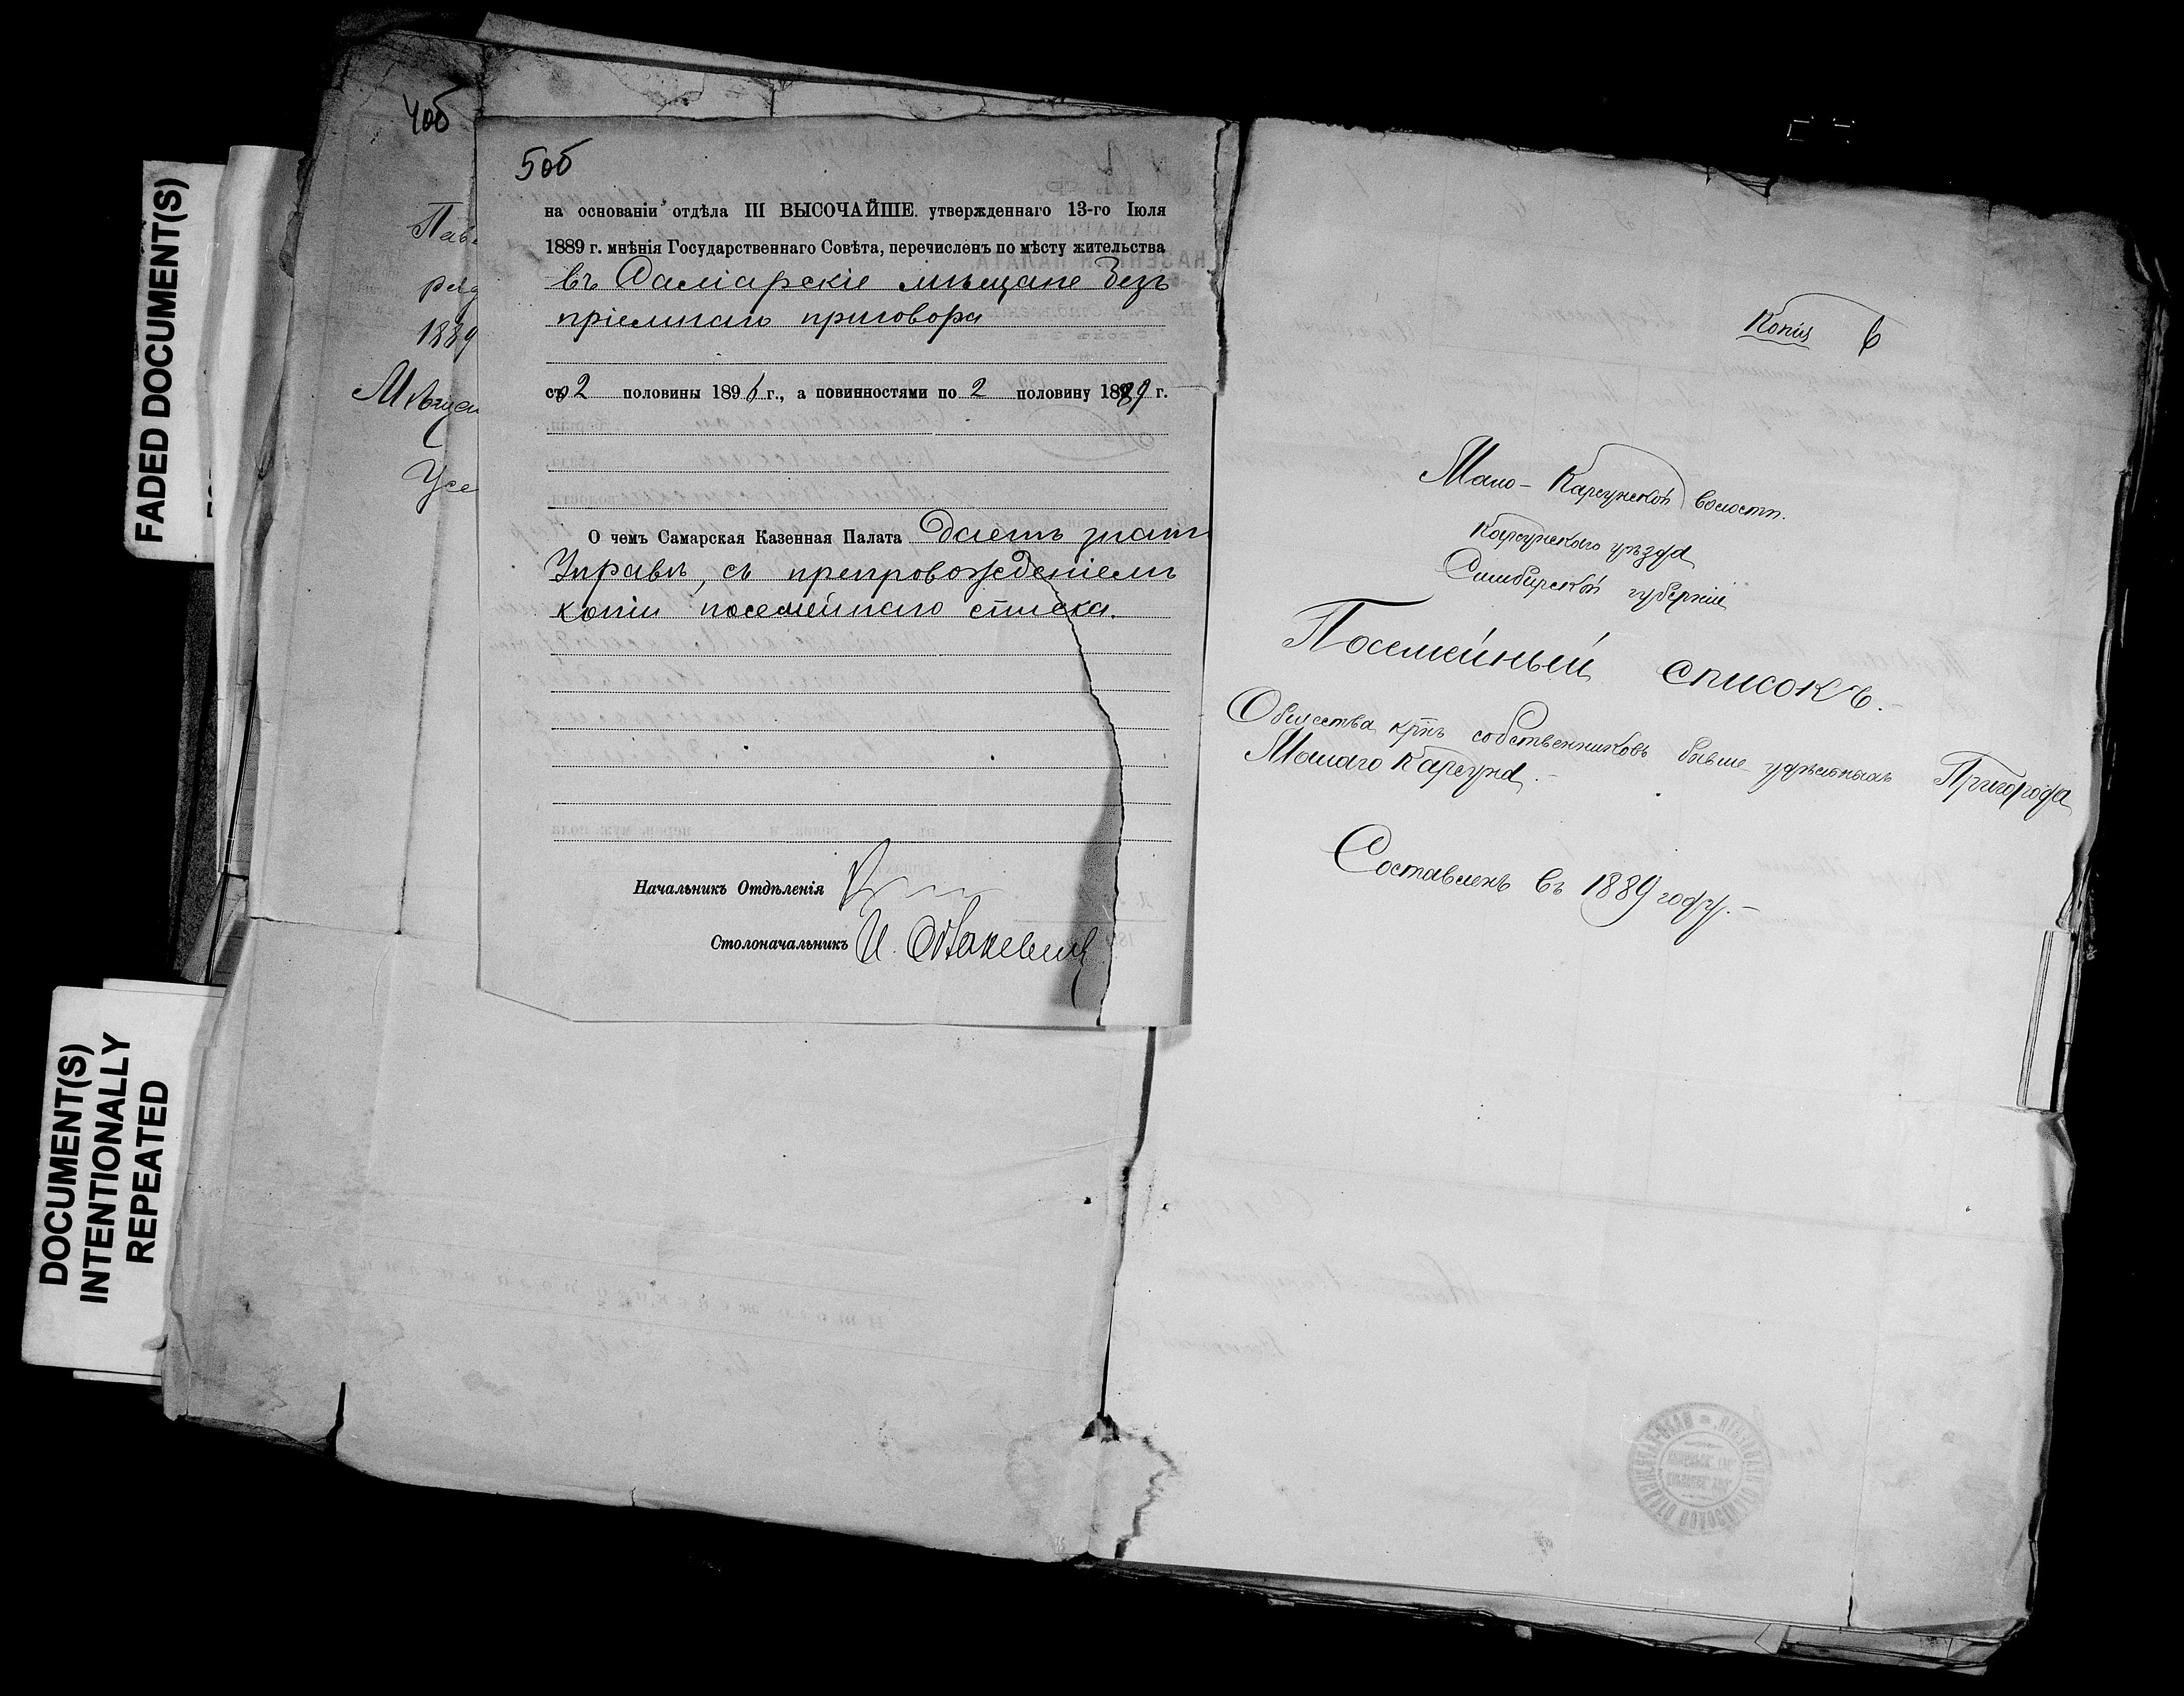 FADED DOCUMENT(S)
DOCUMENT(S)
INTENTIONALLY
REPEATED
4об
1889
5об
на основаніи отдѣла III ВЫСОЧАЙШЕ утвержденнаго 13-го Іюля
1889 г. мнѣнія Государственнаго Совѣта, перечисленъ по мѣсту жительства
въ Самарскіе мѣщане безъ
пріемнаго приговора
съ 2 половины 189 г., а повинностями по 2 половину 1889 г.
О чемъ Самарская Казенная Палата даетъ знать
Управѣ, съ препровожденіемъ
копіи посемейнаго списка.
Начальникъ Отдѣленія
Столоначальникъ И.
Копія 6
Мало-Карсунской волости.
Карсунскаго уѣзда
Симбирской губерніи
Посемейный списокъ.
Общества крнъ собственниковъ бывше удѣльныхъ Пригорода
Малаго Карсуна.
Составленъ въ 1889 году.